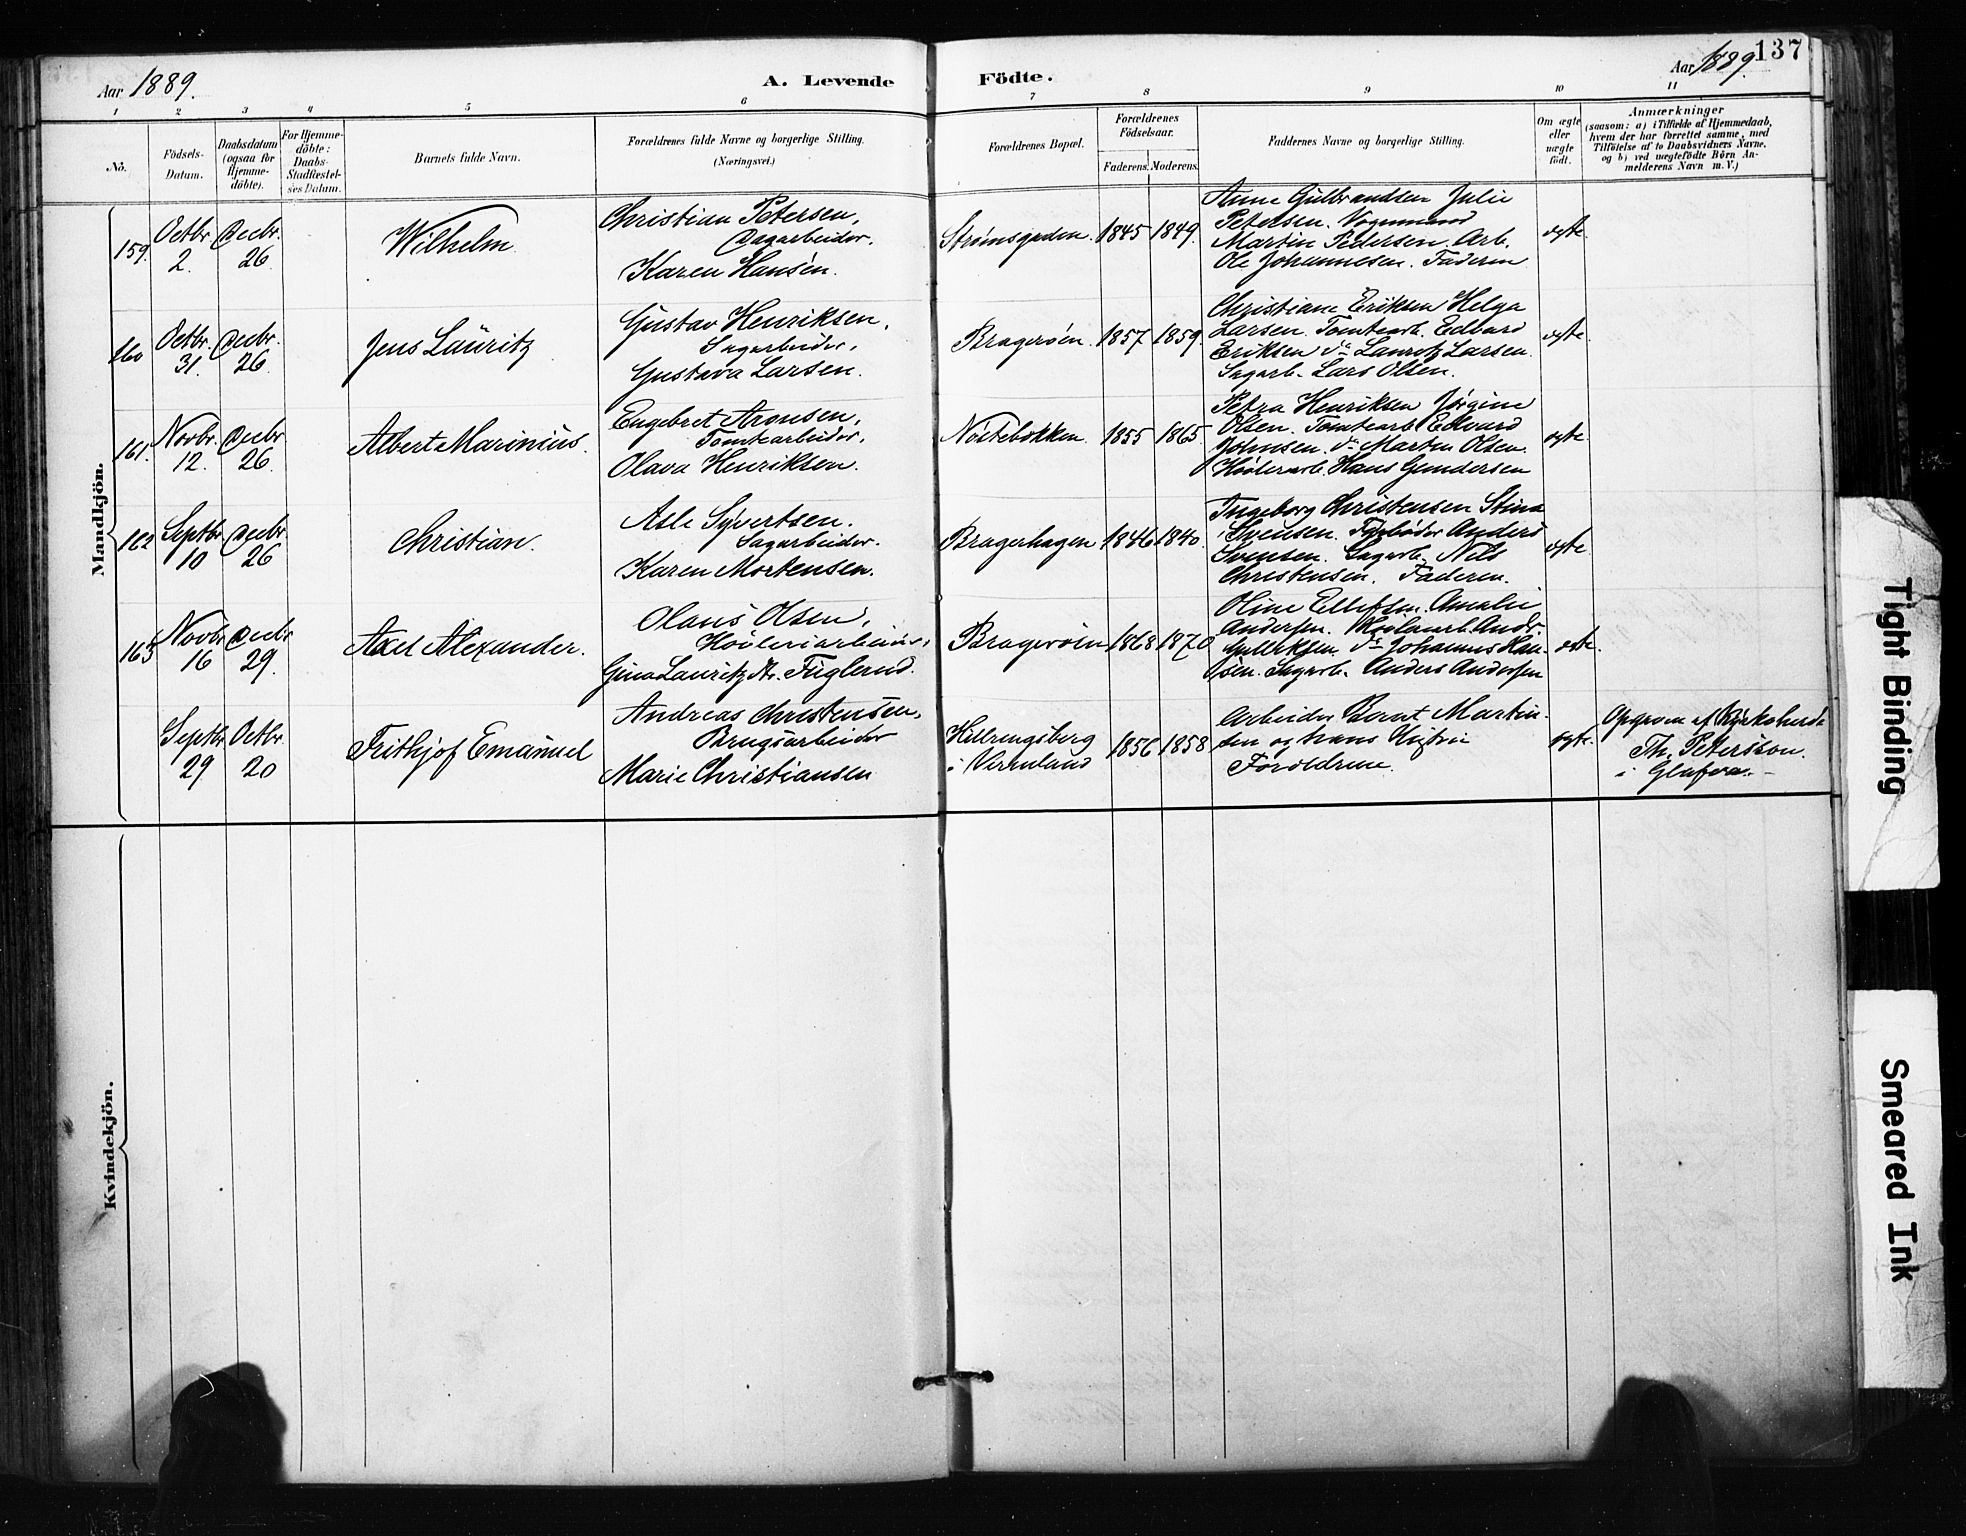 137
Aar 1889.
A. Levende Födte.
Aar 1889.
1 2 3 4 5 6 7 8 9 10 11
No.
Födsels-Datum.
Daabsdatum (ogsaa for Hjemme-döbte).
For Hjemme-döbte: Daabs-Stadfæstel-ses Datum.
Barnets fulde Navn.
Forældrenes fulde Navne og borgerlige Stilling.
(Næringsvei.)
Forældrenes Bopæl.
Forældrenes Födselsaar.
Faderens. Moderens.
Faddernes Navne og borgerlige Stilling.
Om ægte eller uægte födt.
Anmærkninger
(saasom: a) i Tilfælde af Hjemmedaab,
hvem der har forrettet samme, med
Tilföielse af to Daabsvidners Navne,
og b) ved uægtefödte Börn An-
melderens Navn m. V.)
Mandkjön.
159. Octbr. 2. Decbr. 26.
Wilhelm.
Christian Petersen,
Dagarbeider.
Karen Hansen.
Strømsgaden. 1845 1849.
Anne Gulbrandsen Julie
Petersen. Vognmand
Martin Pedersen. Arb.
Ole Johannesen. Faderen
ægte.
160 Octbr. 31. Decbr. 26.
Jens Lauritz
Gustav Henriksen,
Sagarbeider,
Gustava Larsen.
Bragerøen. 1857 1859.
Christiane Eriksen Helga
Larsen. Tomtearb. Edvard
Eriksen do Lauritz Larsen.
Sagarb. Lars Olsen.
ægte.
161. Novbr. 12. Decbr 26.
Albert Marinius.
Engebret Aronsen,
Tomtearbeider,
Olava Henriksen.
Nøstebakken. 1855 1865.
Petra Henriksen Jørgine
Olsen. Tomtearb Edvard
Johnsen. do Martin Olsen.
Høvlerarb. Hans Gundersen
ægte.
162 Septbr. 10 Decbr. 26
Christian.
Asle Syvertsen.
Sagarbeider.
Karen Mortensen.
Bragerhagen 1846 1840.
Ingeborg Christensen Stina
Svensen. Anders
Svensen. Sagarb. Nils
Christensen. Faderen.
ægte
163 Novbr 16 Decbr 29.
Axel Alexander.
Olaus Olsen,
Høvleriarbeider,
Gina Lauritz Dr. Fuglerud.
Bragerøen 1868 1870
Oline Ellefsen. Amalie
Andersen. Høvlearb. Andr.
Gulliksen. do Johannes Han-
sen. Sagarb. Anders Andersen
ægte.
Septbr 29 Octbr. 20
Frithjof Emanuel
Andreas Christensen,
Brugsarbeider
Marie Christiansen
Hillringsberg
i Vermland
1856 1858
Arbeider Bernt Martin-
sen og hans Hustru
Forældrene.
ægte.
Opgiven af Kyrkoherde
Th. Petersson.
i Glafva.-
Kvindekjön.
Tight Binding
Smeared Ink